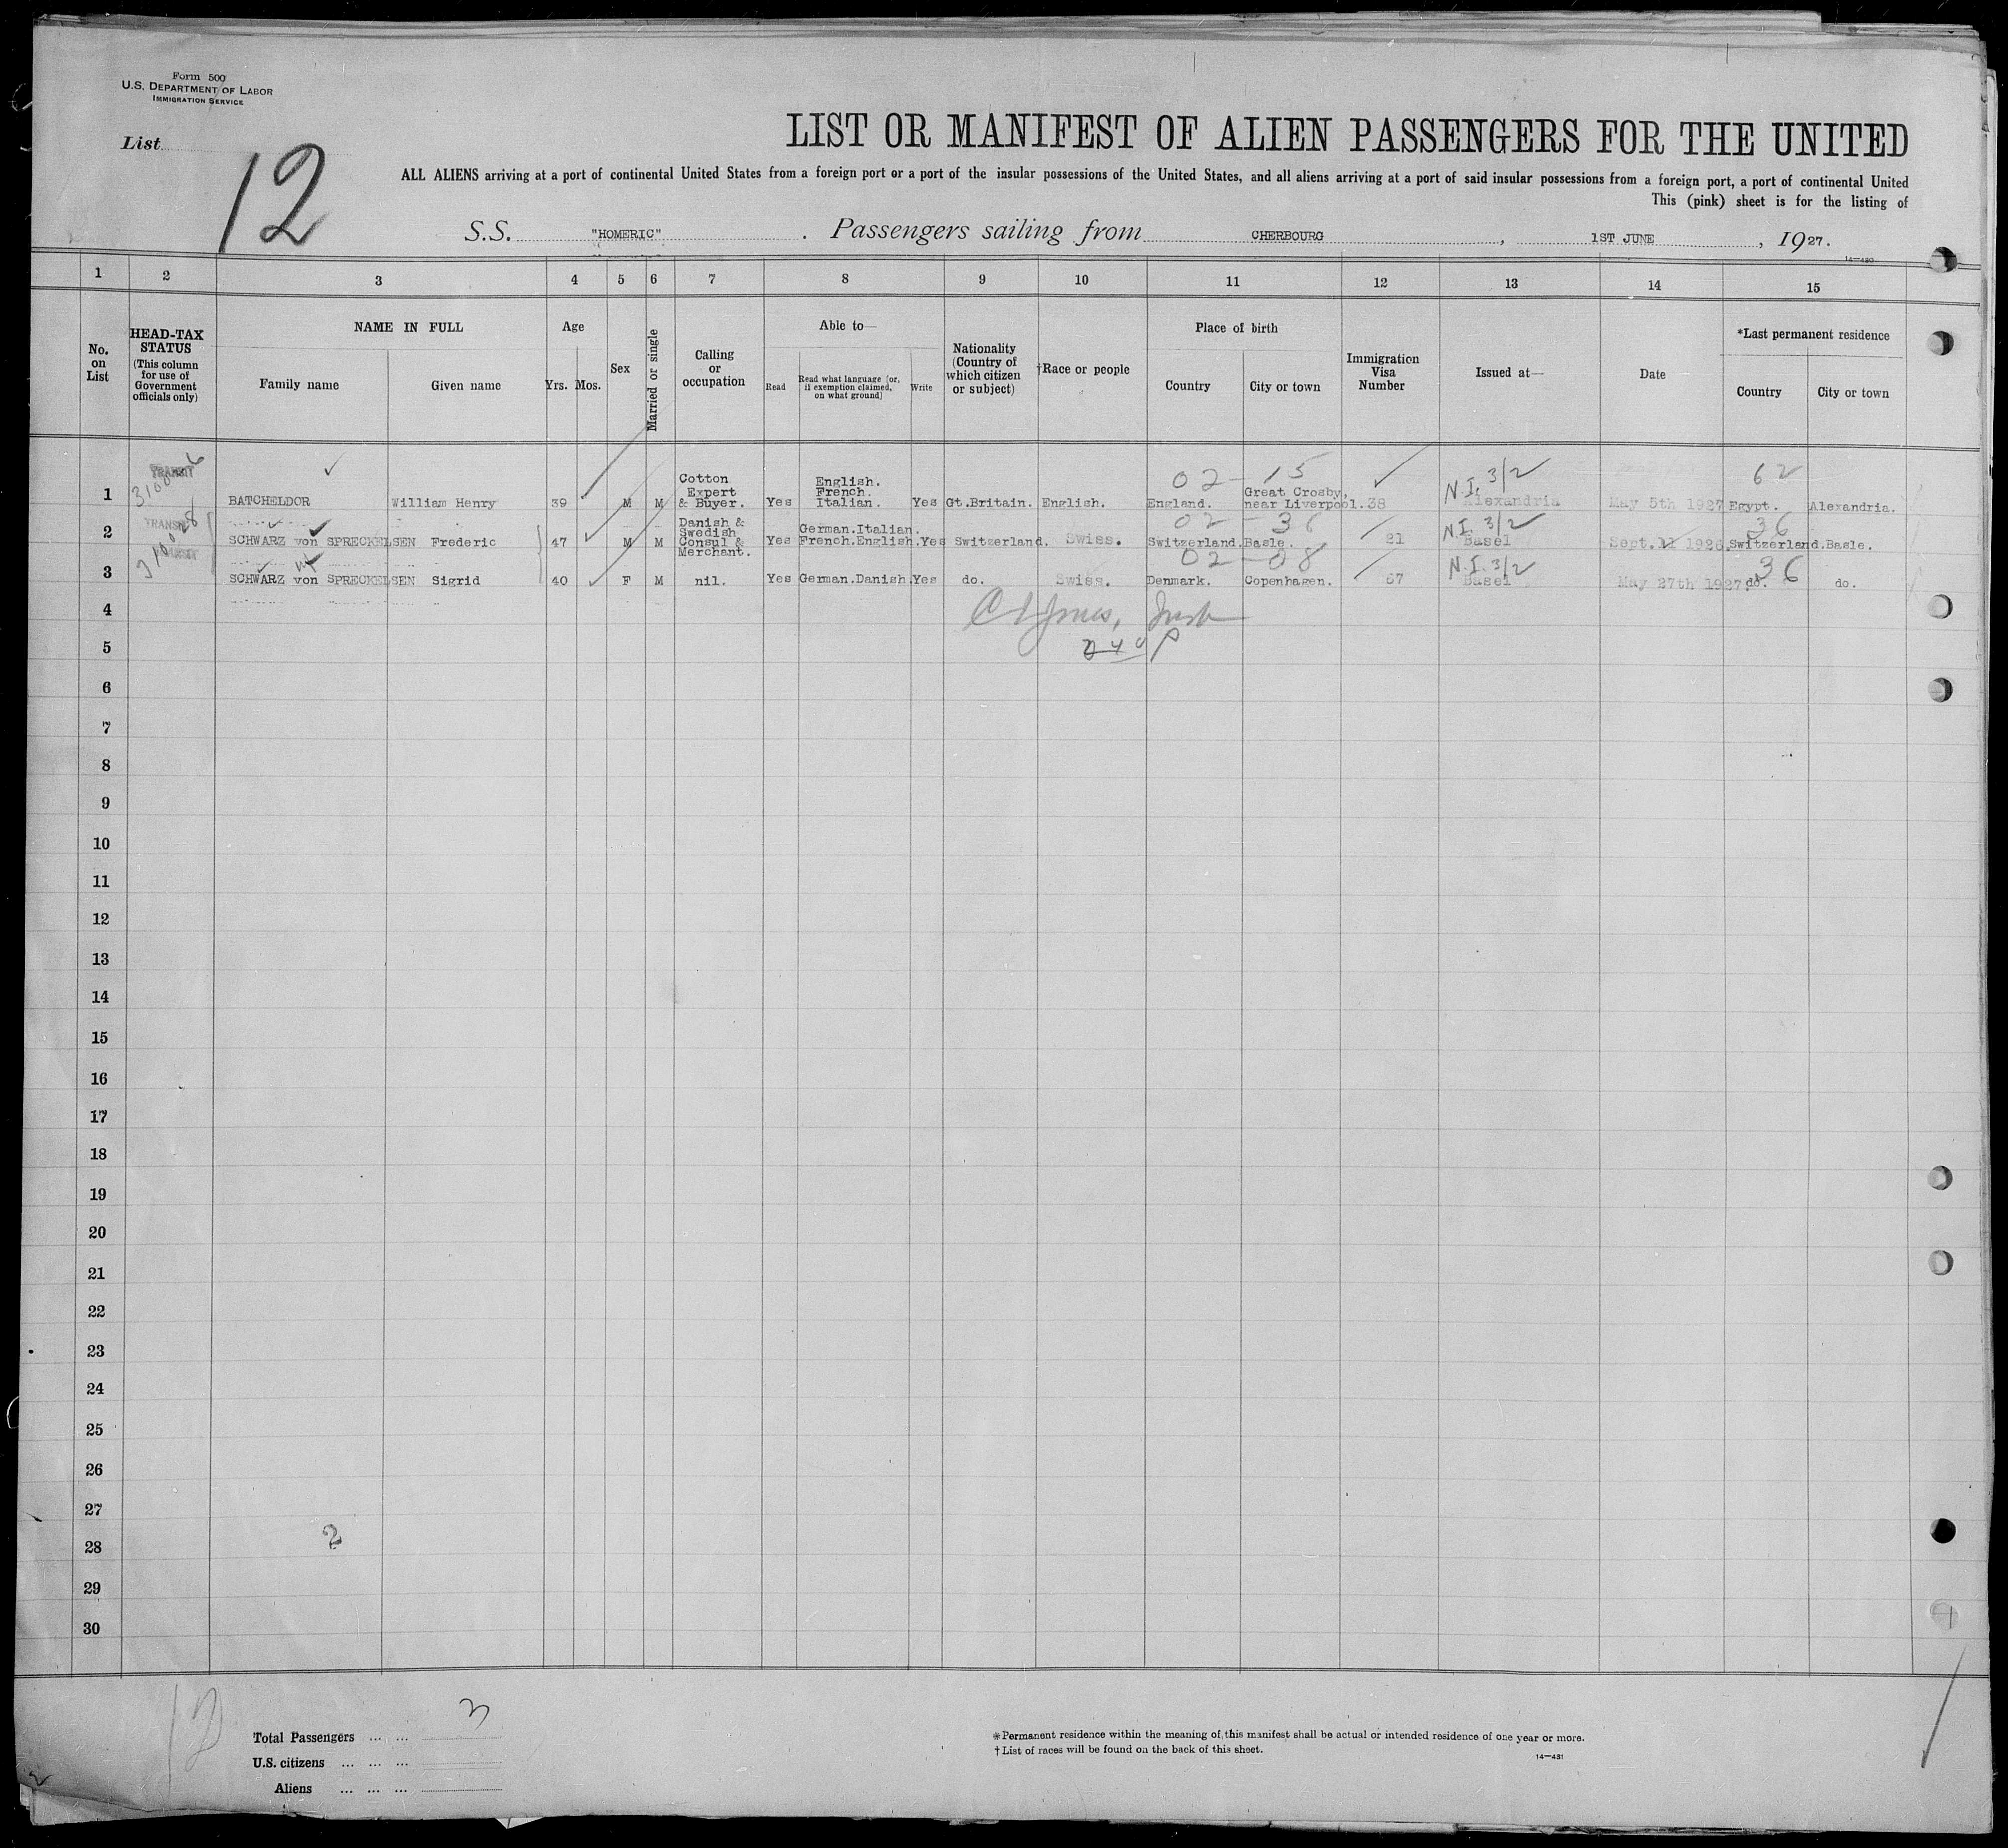 Form 500
U.S. DEPARTMENT OF LABOR
IMMIGRATION SERVICE
List 12
LIST OR MANIFEST OF ALIEN PASSENGERS FOR THE UNITED
ALL ALIENS arriving at a port of continental United States from a foreign port or a port of the insular possessions of the United States, and all aliens arriving at a port of said insular possessions from a foreign port, a port of continental United
This (pink) sheet is for the listing of
S.S. "HOMERIC" . Passengers sailing from CHERBOURG , 1ST JUNE , 1927.
14—480
1 2 3 4 5 6 7 8 9 10 11 12 13 14 15
No. on List
HEAD-TAX STATUS (This column for use of Government officials only)
NAME IN FULL
Family name Given name
Age
Yrs. Mos.
Sex
Married or single
Calling or occupation
Able to—
Read Read what language [or, if exemption claimed, on what ground] Write
Nationality (Country of which citizen or subject)
†Race or people
Place of birth
Country City or town
Immigration Visa Number
Issued at—
Date
*Last permanent residence
Country City or town
TRANSIT
02 - 15 N.I. 3/2 62
1 BATCHELDOR William Henry 39 M M Cotton Expert & Buyer. Yes English. French. Italian. Yes Gt.Britain. English. England. Great Crosby, near Liverpool. 38 Alexandria May 5th 1927 Egypt. Alexandria.
TRANSIT
02 - 36 N.I. 3/2 36
2 SCHWARZ von SPRECKELSEN Frederic 47 M M Danish & Swedish Consul & Merchant. Yes German.Italian. French.English. Yes Switzerland. Swiss. Switzerland. Basle. 21 Basel Sept. 11 1926. Switzerland. Basle.
02 - 08 N.I. 3/2 36
3 SCHWARZ von SPRECKELSEN Sigrid 40 F M nil. Yes German.Danish. Yes do. Swiss. Denmark. Copenhagen. 67 Basel May 27th 1927. do. do.
4
5
6
7
8
9
10
11
12
13
14
15
16
17
18
19
20
21
22
23
24
25
26
27
2
28
29
30
12
Total Passengers ... ... 3
U.S. citizens ... ... ...
Aliens ... ... ...
*Permanent residence within the meaning of this manifest shall be actual or intended residence of one year or more.
†List of races will be found on the back of this sheet.
14—481